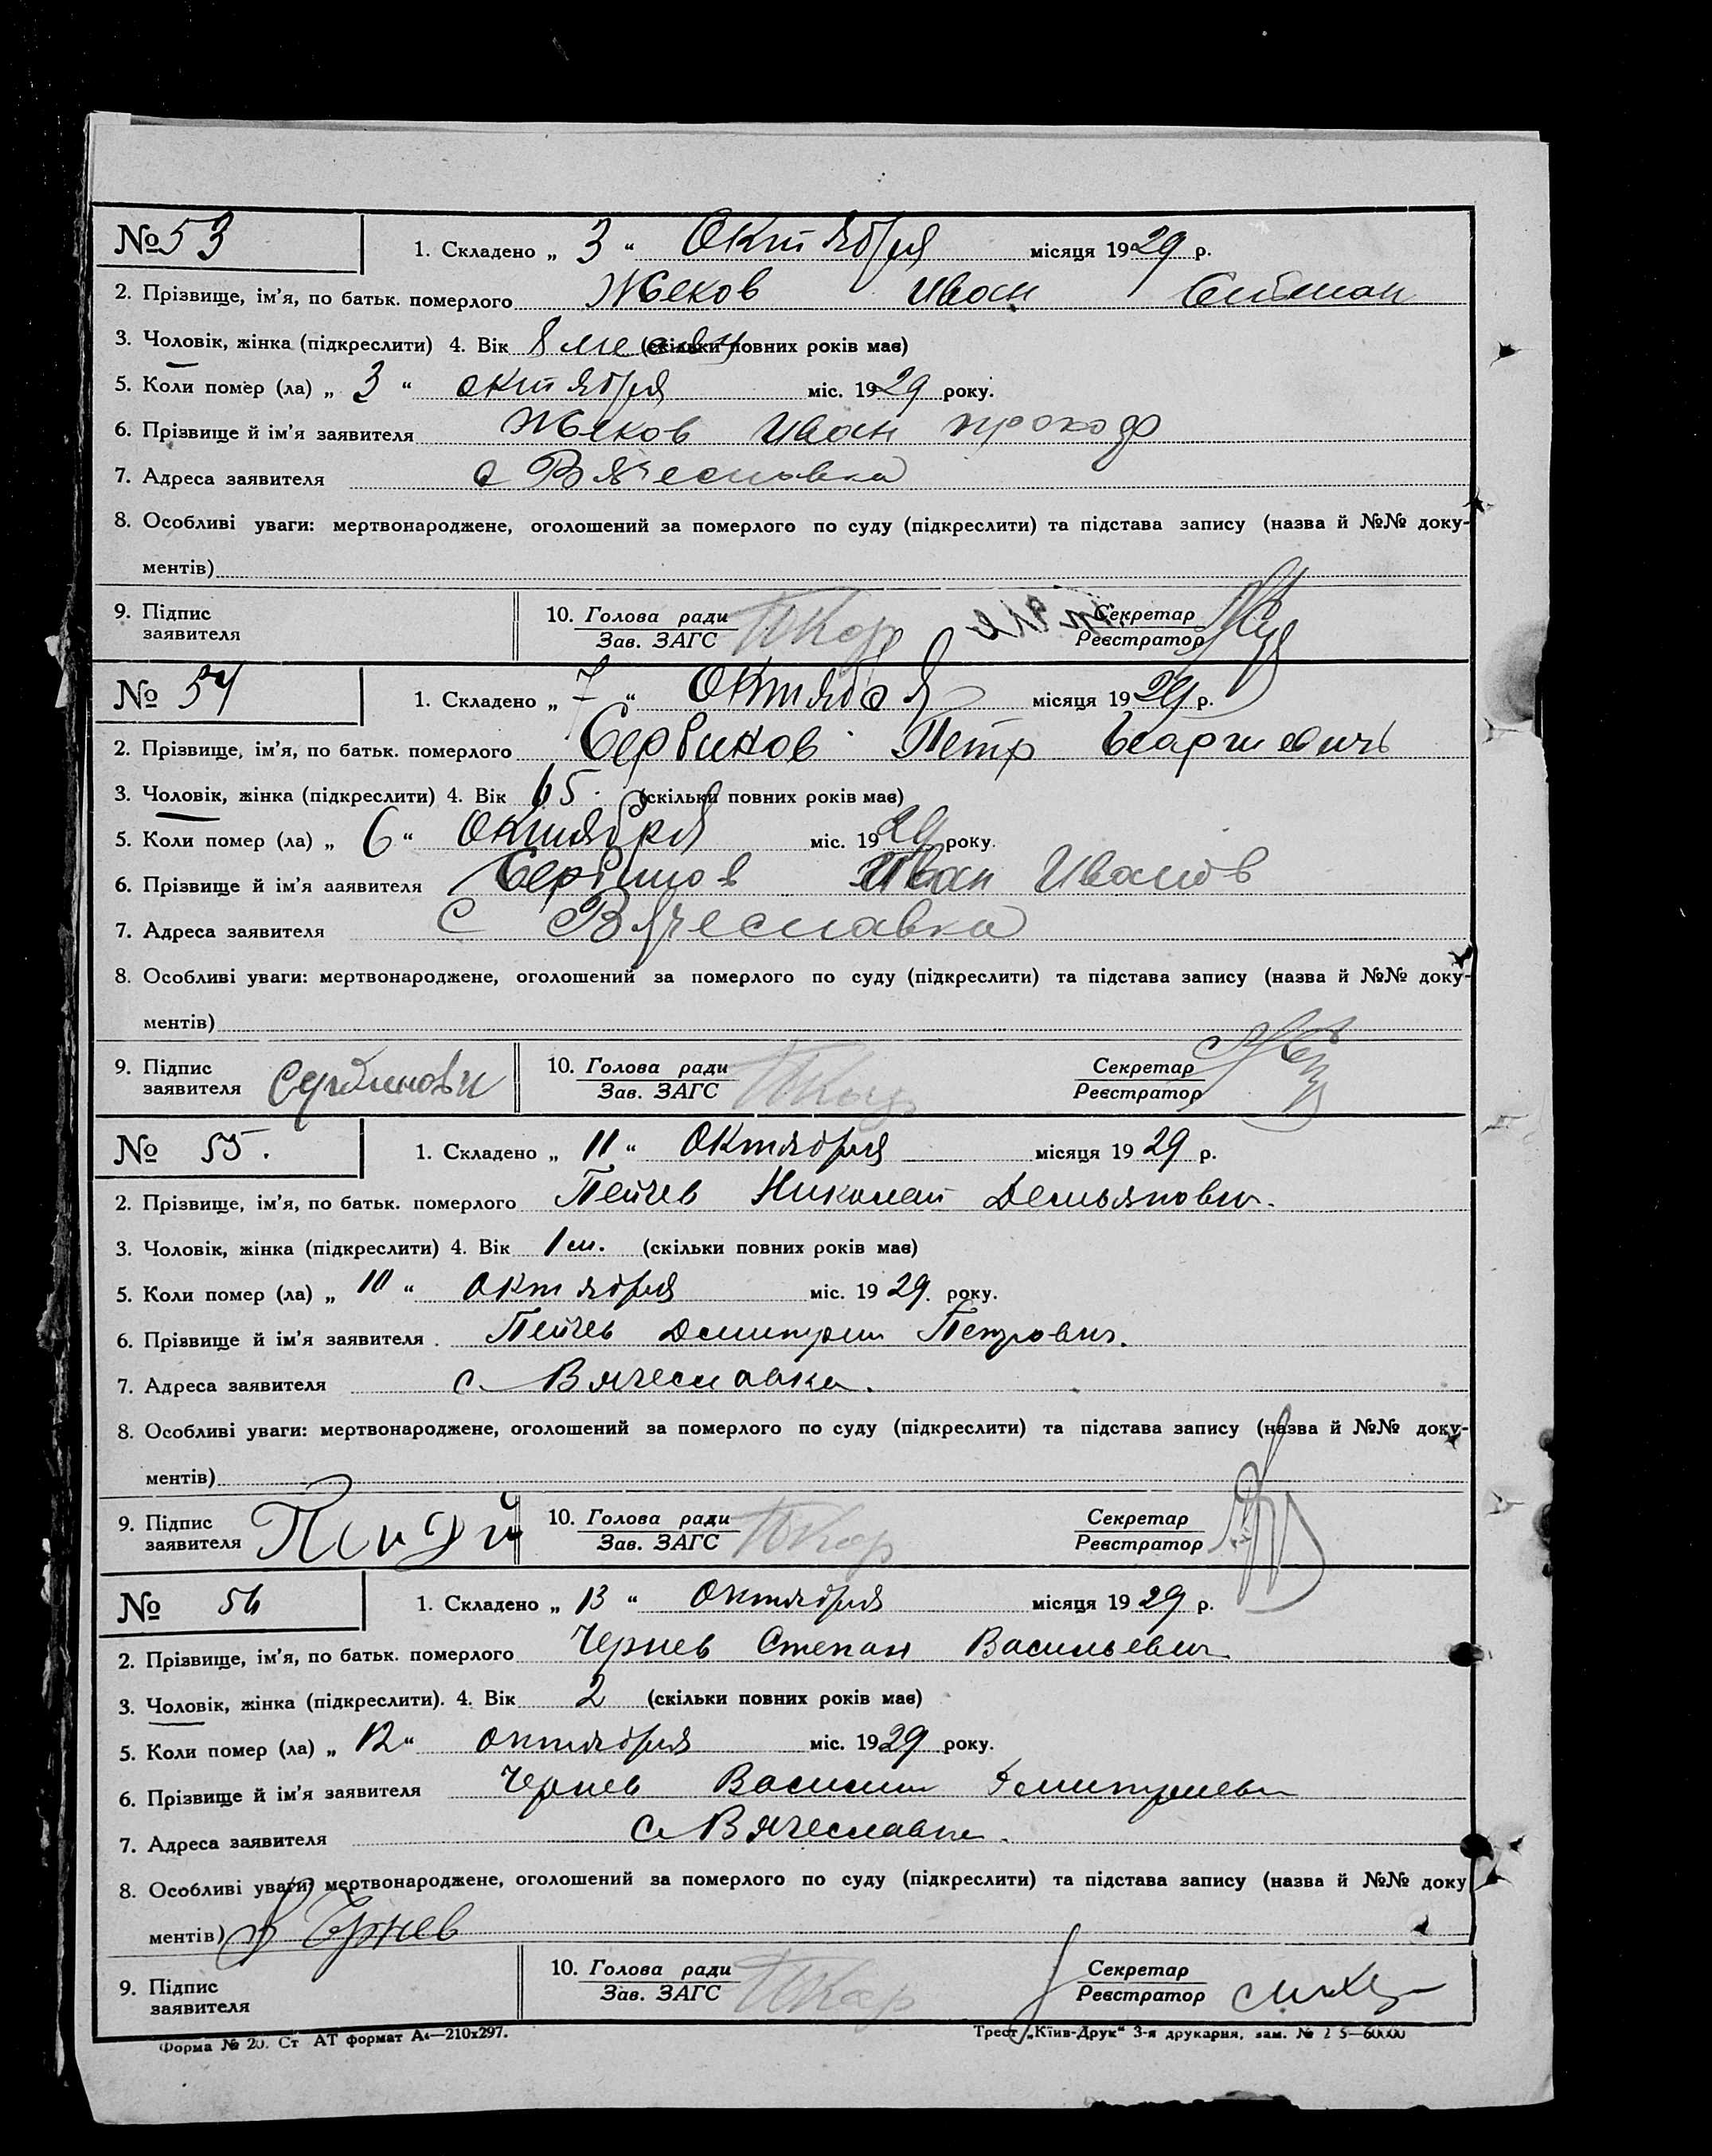 № 53
1. Складено „ 3 “ Октября місяця 1929 р.
2. Прізвище, ім'я, по батьк. померлого Жеков Иван
3. Чоловік, жінка (підкреслити) 4. Вік 8 (скільки повних років має)
5. Коли помер (ла) „ 3 “ октября міс. 1929 року.
6. Прізвище й ім'я заявителя Жеков Иван
7. Адреса заявителя с Вячеславка
8. Особливі уваги: мертвонароджене, оголошений за померлого по суду (підкреслити) та підстава запису (назва й №№ доку-
ментів)
9. Підпис заявителя
10. Голова ради
Зав. ЗАГС
Секретар
Реєстратор
№ 54
1. Складено „ 7 “ Октября місяця 1929 р.
2. Прізвище, ім'я, по батьк. померлого Сербинов Петр
3. Чоловік, жінка (підкреслити) 4. Вік 65. (скільки повних років має)
5. Коли помер (ла) „ 6 “ Октября міс. 1929 року.
6. Прізвище й ім'я ааявителя Сербинов Иван Иванов
7. Адреса заявителя с Вячеславка
8. Особливі уваги: мертвонароджене, оголошений за померлого по суду (підкреслити) та підстава запису (назва й №№ доку-
ментів)
9. Підпис заявителя
10. Голова ради
Зав. ЗАГС
Секретар
Реєстратор
№ 55.
1. Складено „ 11 “ Октября місяця 1929 р.
2. Прізвище, ім'я, по батьк. померлого Пейчев Николай
3. Чоловік, жінка (підкреслити) 4. Вік 1 м. (скільки повних років має)
5. Коли помер (ла) „ 10 “ октября міс. 1929. року.
6. Прізвище й ім'я заявителя. Пейчев Дмитрий Петрович.
7. Адреса заявителя с. Вячеславка.
8. Особливі уваги: мертвонароджене, оголошений за померлого по суду (підкреслити) та підстава запису (назва й №№ доку-
ментів)
9. Підпис заявителя
10. Голова ради
Зав. ЗАГС
Секретар
Реєстратор
№ 56
1. Складено „ 13 “ Октября місяця 1929 р.
2. Прізвище, ім'я, по батьк. померлого Чернев Степан Васильевич
3. Чоловік, жінка (підкреслити). 4. Вік 2 (скільки повних років має)
5. Коли помер (ла) „ 12 “ октября міс. 1929 року.
6. Прізвище й ім'я заявителя Чернев Василий Дмитриеви
7. Адреса заявителя с Вячеславка.
8. Особливі уваги: мертвонароджене, оголошений за померлого по суду (підкреслити) та підстава запису (назва й №№ доку
ментів) Чернев
9. Підпис заявителя
10. Голова ради
Зав. ЗАГС
Секретар
Реєстратор
Форма № 20. Ст АТ формат А4—210х297.
Трест „Київ-Друк“ 3-я друкарня, зам. №